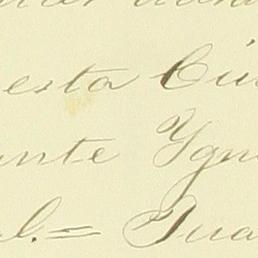 esta Ciu
ante Ygn
l.= Jua